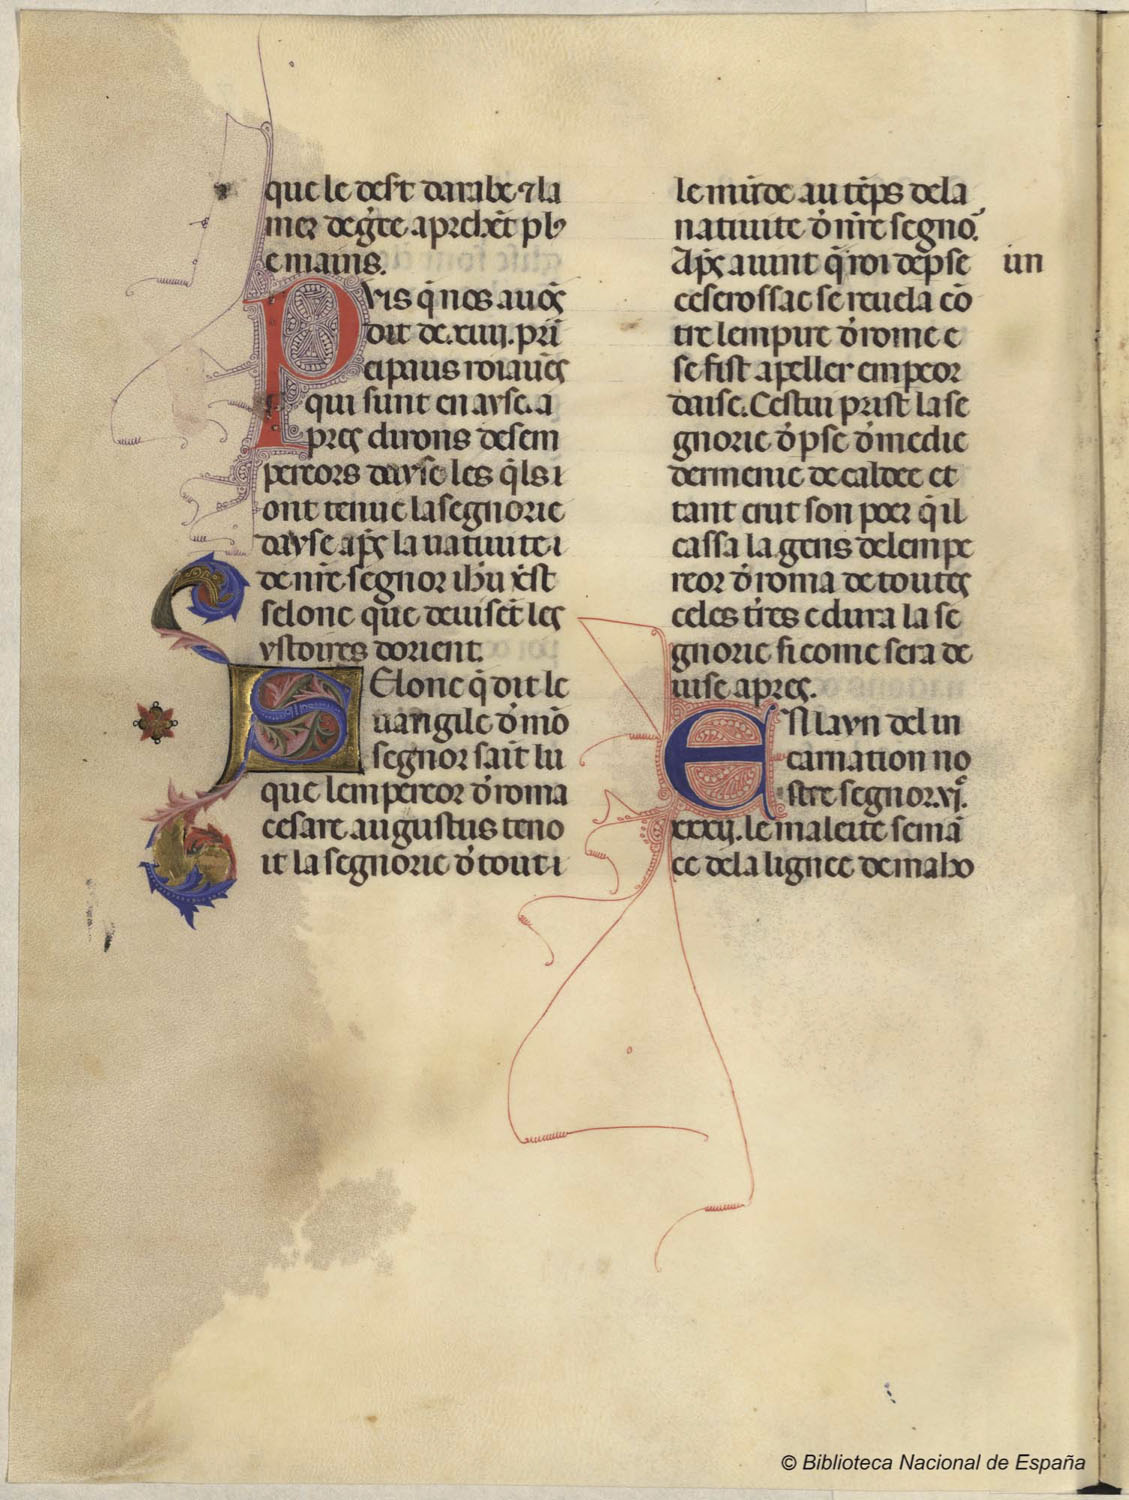 que le desт darabe ⁊ la
mer de g̃ce aprchẽt plꝰ
e mains.
PVis q̃ nos auõs
dit de .xiiij. prĩ
cipaus roiaues
qui sunt en ayse. a
pres dirons des em
pereors dayse les q̃ls i
ont tenue la segnorie
dayse ap̃s la natiuite i
de nr̃e segnor ihũ xẽst
selonc que deuisẽt les
ystoires dorient.
SElonc q̃ dit le
uangile d̾ mõ
segnor saĩt lu
que lempereor d̾ roma
cesare augustus teno
it la segnorie d̾ tout i
le mũde au tẽps de la
natiuite d̾ nr̃e segnõ.
Ap̃s auint q̃ roi de pse
cescrossac se reuela cõ
tre lempire d̾ rome e
se fist apeller empeor
daise. Cestui prist la se
gnorie d̾ pse d̾ medie
dermenie de caldee et
tant crut son poer q̃ il
cassa la gens de lempe
reor d̾ roma de toutes
celes tr̃es e dura la se
gnorie si come sera de
uise apres.
EN layn del in
carnation no
stre segnor .vi.
xxxij. le maleite semã
ce de la lignee de maho
un
© Biblioteca Nacional de España